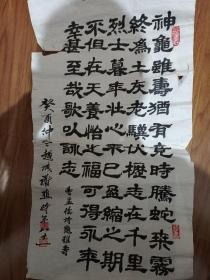 神龜雖壽猶有竟時騰蛇乘霧
終為土灰老驥伏櫪志在千里
烈士暮年壯心不已盈縮之期
不但在天養怡之福可得永年
幸甚至哉歌以詠志
曹孟德詩龜雖壽
癸酉仲